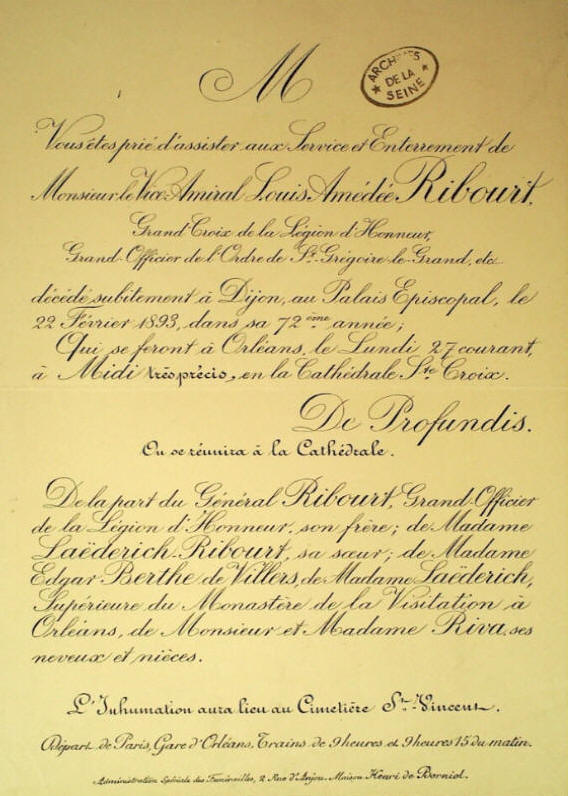 M
ARCHIVES
DE LA
SEINE
Vous êtes prié d'assister aux Service et Enterrement de
Monsieur le Vice-Amiral Louis-Amédée Ribourt,
Grand Croix de la Légion d'Honneur,
Grand-Officier de l'Ordre de St. Grégoire-le-Grand, etc.
décédé subitement à Dijon, au Palais Episcopal, le
22 Février 1893, dans sa 72ème année;
Qui se feront à Orléans, le Lundi 27 courant,
à Midi très précis, en la Cathédrale Ste Croix.
De Profundis.
On se réunira à la Cathédrale.
De la part du Général Ribourt, Grand-Officier
de la Légion d'Honneur, son frère; de Madame
Laëderich-Ribourt, sa sœur; de Madame
Edgar Berthe de Villers, de Madame Laëderich,
Supérieure du Monastère de la Visitation à
Orléans, de Monsieur et Madame Riva, ses
neveux et nièces.
L'Inhumation aura lieu au Cimetière St. Vincent.
Départ de Paris, Gare d'Orléans, Trains de 9 heures et 9 heures 15 du matin.
Administration Spéciale des Funérailles, 2 Rue d'Anjou. Maison Henri de Borniol.